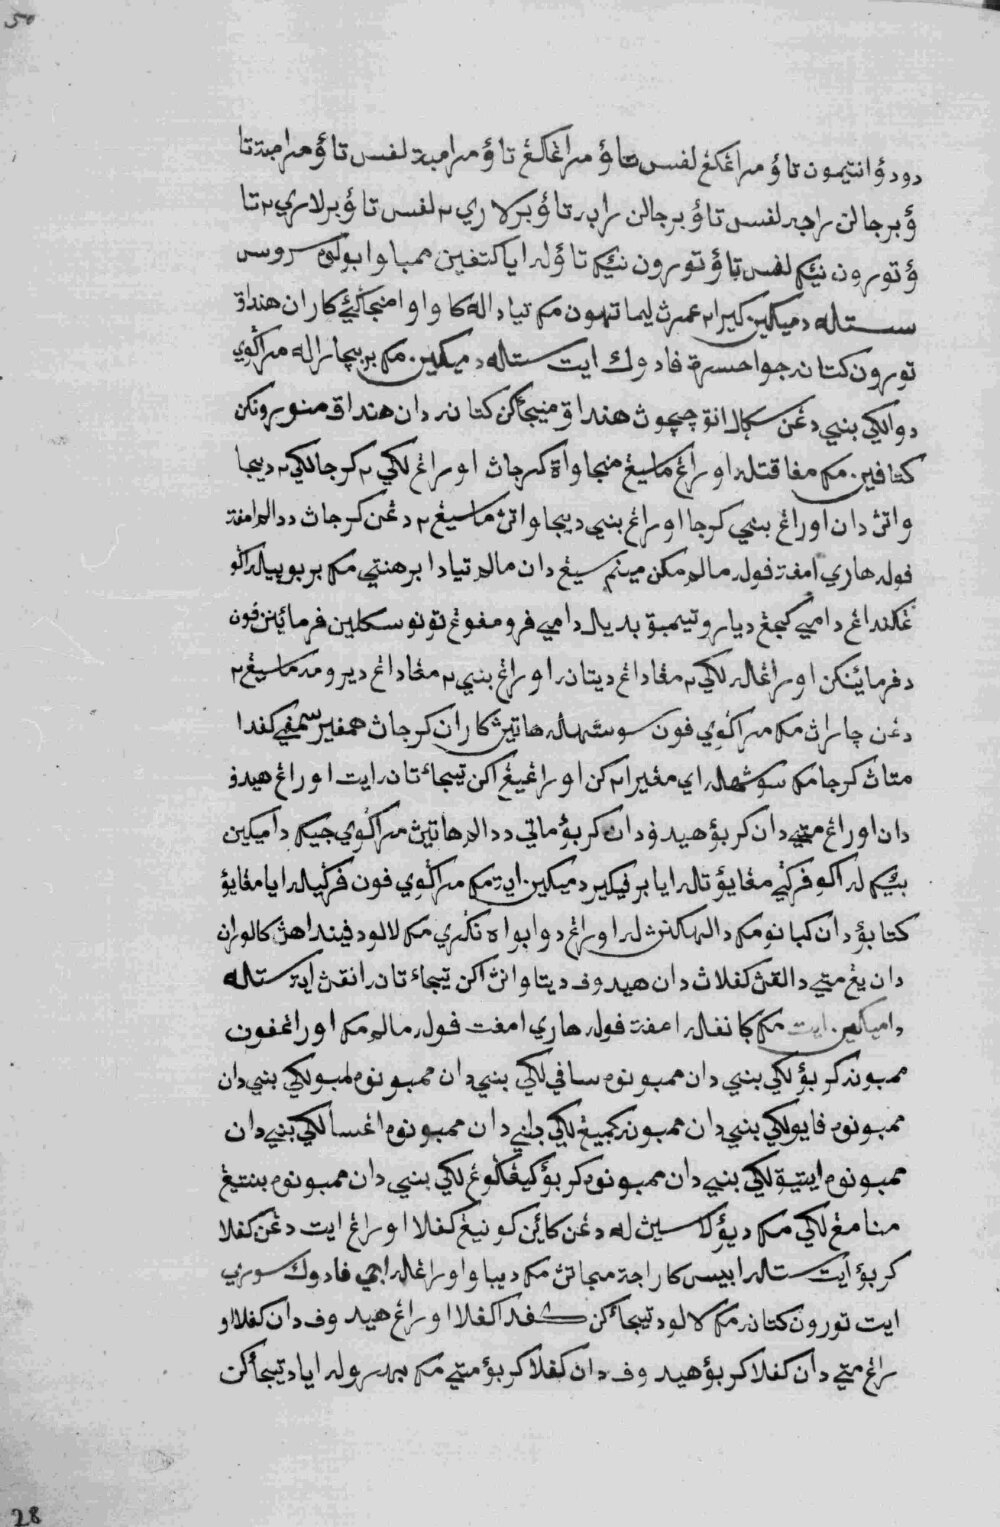 50
دودؤ انتيمون تاؤ مراغكڠ لفس تاؤ مراغكڠ تاؤ مرامبة لفس تاؤ مرامبة تا
ؤ برجالن راجه لفس تاؤ برجالن راجه تاؤ برلاري٢ لفس تاؤ برلاري٢ تا
ؤ تورون نيئك لفس تاؤ تورون نيئك تاؤله اي اكتفين ممباوا بولوه سروس
ستله دميكين كيرا٢ عمرڽ ليما تهون مك تيادله كاو او امنجاڬيئي كاران هنداق
تورون كتانه جوا حسرة فادوك ايت ستله دميكين مك بربيچاراله مراڬوي
دوا لكي بنيي دڠن سكال انق چوچوڽ هنداق منيجاٴكن كتانه دان هنداق منورونكن
كتافين مك مفاقتله اورڠ ماسيڠ منجاواة كرجاڽ اورڠ لكي٢ كرجا لكي٢ ديبجا
واتڽ دان اورڠ بنيي كرجا اورڠ بنيي ديبجاواتڽ ماسيڠ٢ دڠن كرجاڽ ددالم امفة
فوله هاري امفة فوله مالم مكن مينم سيڠ دان مالم تياد ابرهنتي مك بربوپيله اكو
ڠكنداڠ دامي كجڠ دياروتيمبق بديل دامي فرومفوڠ تونو سكلين فرمائينن فون
دفرمائينكن اوراڠاله لكي٢ مڠاداڠ ديتانه اورڠ بنيي٢ مڠاداڠ ديرومه ماسيڠ٢
دڠن چاراڽ مك مراڬوي فون سوسهله هاتيڽ كاران كرجاڽ همفير سمفي كفدا
متاڽ كرجا مك سوسهله اي مڠيرا٢كن اورڠيڠ اكن تيجاٴ تانه ايت اورڠ هيدف
دان اورڠ متي دان كربؤ هيدف دان كربؤ ماتي ددالم هاتيڽ مراڬوي جيك داميكين
بئيك له اكو فركي مڠايؤ تاله اي ابرفيكير دميكين ايت مك مراڬوي فون فركيله اي امڠايؤ
كتابؤ دان كبانو مك دالهكنڽ له اورڠ دوا بواه نڬري مك لالو دفينداهڽ كالوران
دان يڠ متي دالڤڽ كفلاڽ دان هيدوف ديتاوانڽ اكن تيجاٴ تانه انقڽ ايت ستاله
داميكين ايت مك جانفاله امفت فوله هاري امفت فوله مالم مك اورڠفون
ممبونه كربؤ لكي بنيي دان ممبونوه سافي لكي بنيي دان ممبونوه لمبو لكي بنيي دان
ممبونوه فايو لكي بنيي دان ممبونه كمبيڠ لكي بنيي دان ممبونوه اڠسا لكي بنيي دان
ممبونوه ايتيق لكي بنيي دان ممبونوه كربؤ كيڠكوڠ لكي بنيي دان ممبونوه بنتيڠ
منامڠ لكي مك ديؤلاسيڽ له دڠن كائين كونيڠ كفلا اورڠ ايت دڠن كفلا
كربؤ ايت ستله ابيس كاراجة مجاتڽ مك ديباوا اورڠاله اجي فادوك سوري
ايت تورون كتانه مك لالو دتيجاٴكن كفدا كفلا اورڠ هيدوف دان كفلا او
رڠ متي دان كفلا كربؤ هيدوف دان كفلا كربؤ متي مك برسوله اي ادتيجاٴكن
28